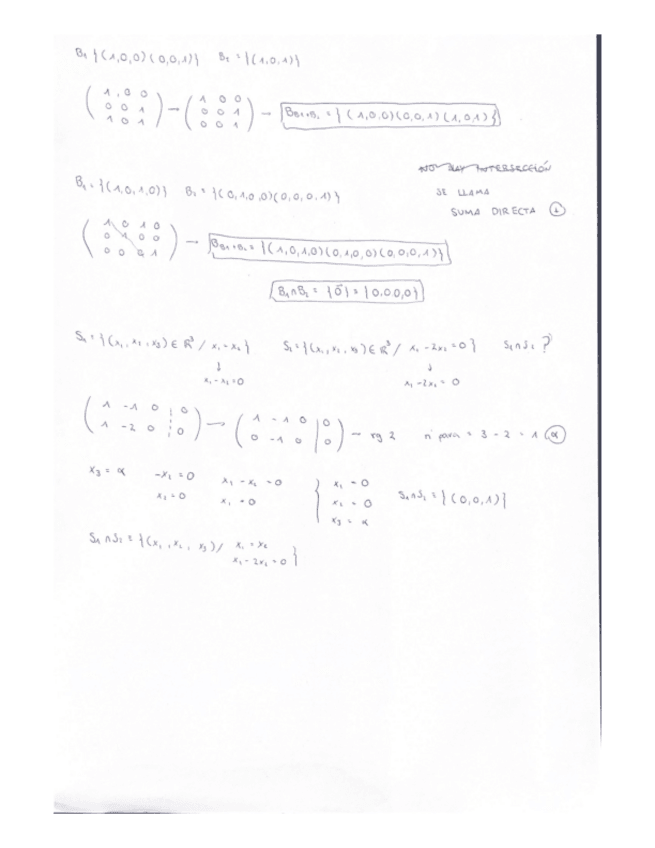 B₁ {(1,0,0)(0,0,1)} B₂ = {(1,0,1)}
( 1 , 0 0 / 0 0 1 / 1 0 1 ) → ( 1 0 0 / 0 0 1 / 0 0 1 ) → B_{B1+B2} = { (1,0,0)(0,0,1)(1,0,1)}
NO HAY INTERSECCIÓN
B₁ = {(1,0,1,0)} B₂ = {(0,1,0,0)(0,0,0,1)}
SE LLAMA
SUMA DIRECTA ⊕
( 1 0 1 0 / 0 1 0 0 / 0 0 0 1 ) → B_{B1+B2} = {(1,0,1,0)(0,1,0,0)(0,0,0,1)}
B₁∩B₂ = {0⃗} = {0,0,0,0}
S₁ = {(x₁, x₂, x₃) ∈ R³ / x₁ = x₂} S₂ = {(x₁, x₂, x₃) ∈ R³ / x₁ - 2x₂ = 0} S₁∩S₂ ?
↓ ↓
x₁ - x₂ = 0 x₁ - 2x₂ = 0
( 1 -1 0 | 0 / 1 -2 0 | 0 ) → ( 1 -1 0 | 0 / 0 -1 0 | 0 ) → rg 2 nº para = 3 - 2 = 1 α
x₃ = α -x₂ = 0 x₁ - x₂ = 0 x₁ = 0
x₂ = 0 x₁ = 0 x₂ = 0 S₁∩S₂ = {(0,0,1)}
x₃ = α
S₁∩S₂ = {(x₁, x₂, x₃) / x₁ = x₂
x₁ - 2x₂ = 0}